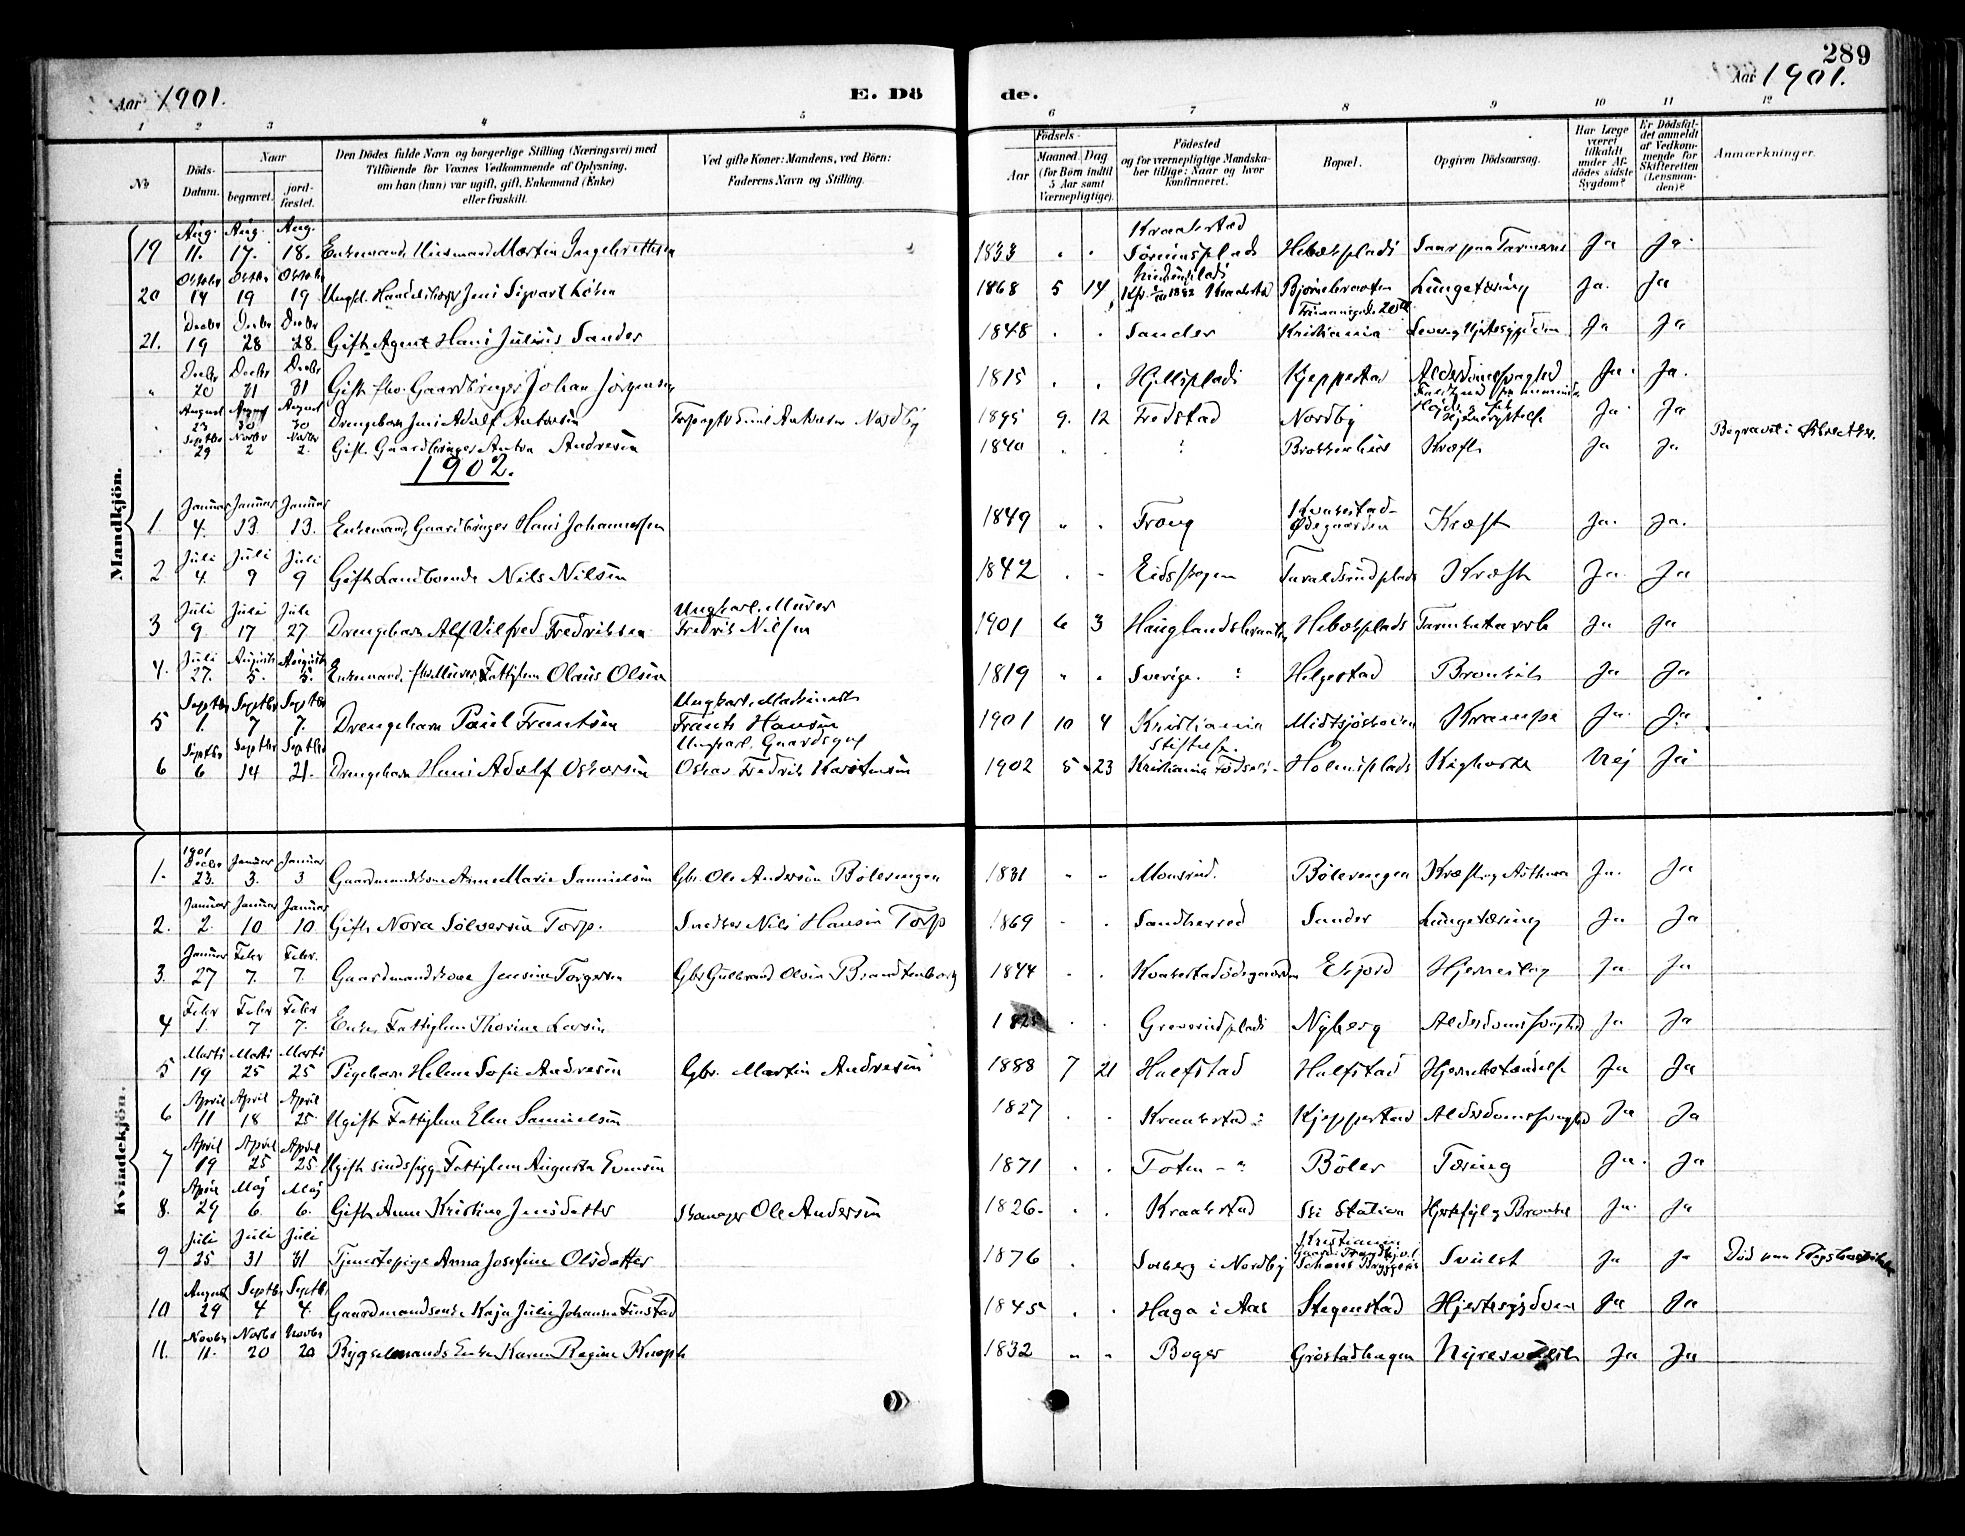 289
Aar 1901.
E. Dö
de.
Aar 1901.
1 2 3 4 5 6 7 8 9 10 11 12
No
Döds-Datum.
Naar
begravet.
jord-fæstet.
Den Dödes fulde Navn og borgerlige Stilling (Næringsvei) med
Tilföiende for Voxnes Vedkommende af Oplysning,
om han (hun) var ugift, gift, Enkemand (Enke)
eller fraskilt.
Ved gifte Koner: Mandens, ved Börn:
Faderens Navn og Stilling.
Födsels-
Aar
Maaned. Dag
(for Börn indtil
5 Aar samt
Værnepligtige).
Födested
og for værnepligtige Mandska-
ber tillige: Naar og hvor
konfirmeret.
Bopæl.
Opgiven Dödsaarsag.
Har Læge
været
tilkaldt
under Af-
dödes sidste
Sygdom?
Er Dödsfal-
det anmeldt
af Vedkom-
mende for
Skifteretten
(Lensman-
den)?
Anmærkninger.
Mandkjön.
19 Aug. 11. Aug. 17. Aug. 18. Enkemand Husmand Martin Ingebretsen 1833 Kraakstad Hebækplads Saar paa Tarmene Ja Ja
20 Oktober 14 Oktbr 19 Oktober 19 Ungk. Jens Sigvart 1868 5 14 1882 Kraakstad Lungetæring Ja. Ja
21. Decbr 19 Decbr 28 Decbr 28. Gift Agent Hans Julius Sander 1848 Sander Kristiania Ja Ja
" Decbr 20 Decbr 31 Decbr 31 Gift fhv. Gaardbruger Johan Jørgensen 1815 Kjeppestad Alderdomssvaghed Ja Ja.
August 23 August 30 August 30 Drengebarn Jens Adolf 1895 9. 12 Fredstad Nordby Ja Ja
Septbr 29 Novbr 2 Novbr 2. Gift Gaardbruger Anton Andresen 1840 Kræft Ja Ja. Begravet i
1902.
1 Januar 4. Januar 13 Januar 13. Enkemand, Gaardbruger Hans Johannessen 1849 Kvakestad-Ødegaarden Kræft Ja. Ja.
2 Juli 4. Juli 9 Juli 9 Gift Landboende Nils Nilsen 1842 Eidsskogen Kræft Ja Ja
3 Juli 9 Juli 17 Juli 27 Drengebarn Alf Vilfred Fredriksen Ungkarl. Murer Fredrik Nilsen 1901 6 3 Hebækplads Ja Ja
4. Juli 27. August 5. August 5. Enkemand, fhv. Murer, Fattiglem Olaus Olsen 1819 Sverige. Helgestad Bronkit Ja Ja
5 Septbr 1. Septbr 7 Septbr 7. Drengebarn Paul Frantsen Ungkarl. Maskinist Frants Hansen 1901 10 4 Kristiania Krampe Ja Ja
6 Septbr 6 Septbr 14 Septbr 21. Drengebarn Hans Adolf Oskarsen Ungkarl. Gaardsgut Oskar Fredrik Karstensen 1902 5 23 Kristiania Fødsels-stiftelse. Holmsplads Kighoste Nej Ja
Kvindekjön.
1. 1901 Decbr 23. Januar 3. Januar 3 Gaardmandskone Anne Marie Samuelsen Gbr. Ole Andersen Bølerengen 1831 Monsrud. Bølerengen Kræft og Asthma Ja. Ja
2. Januar 2. Januar 10 Januar 10 Gift Nora Sølversen Torp. Snedker Nils Hansen Torp 1869 Sandherred Sander Lungetæring Ja Ja
3. Januar 27 Febr 7. Febr. 7. Gaardmandskone Jensine Torgersen Gbr Gulbrand Olsen 1844 Kvakestadødegaarden Eljord Hjerneslag Ja Ja
4 Febr 1. Febr 7 Febr 7. Enke, Fattiglem Thorine Larsen Greverudplads Nyberg Alderdomssvaghed Ja Ja
5 Marts 19 Marts 25 Marts 25 Pigebarn Helene Sofie Andresen Gbr. Martin Andresen 1888 7 21 Halfstad Halfstad Hjernebetændelse Ja Ja
6 April 11 April 18 April 25 Ugift Fattiglem Elen Samuelsen 1827 Kraakstad Kjeppestad Alderdomssvaghed Ja Ja
7 April 19 April 25 April 25 Ugift sindssyg Fattiglem Augusta Evensen 1871 Toten Bøler Tæring Ja Ja
8. April 29 Maj 6. Maj 6. Gift Anne Kristine Jensdatter Skomager Ole Andersen 1826 Kraakstad Ski Station Hjertefejl og Bronkit Ja Ja
9 Juli 25 Juli 31 Juli 31 Tjenestepige Anna Josefine Olsdatter 1876 Solberg i Nordby Kristiania Svulst Ja Ja Død paa Rigshospitalet
10 August 29 Septbr 4 Septbr 4. Gaardmandsenke Kaja Julie Johansen Finstad 1845 Haga i Aas Stegenstad Hjertesygdom Ja Ja
11. Novbr 11. Novbr 20 Novbr 20 Bygselmands Enke Karen Regine Knoph 1832 Boger Grøstadhagen Nyresvulst Ja Ja